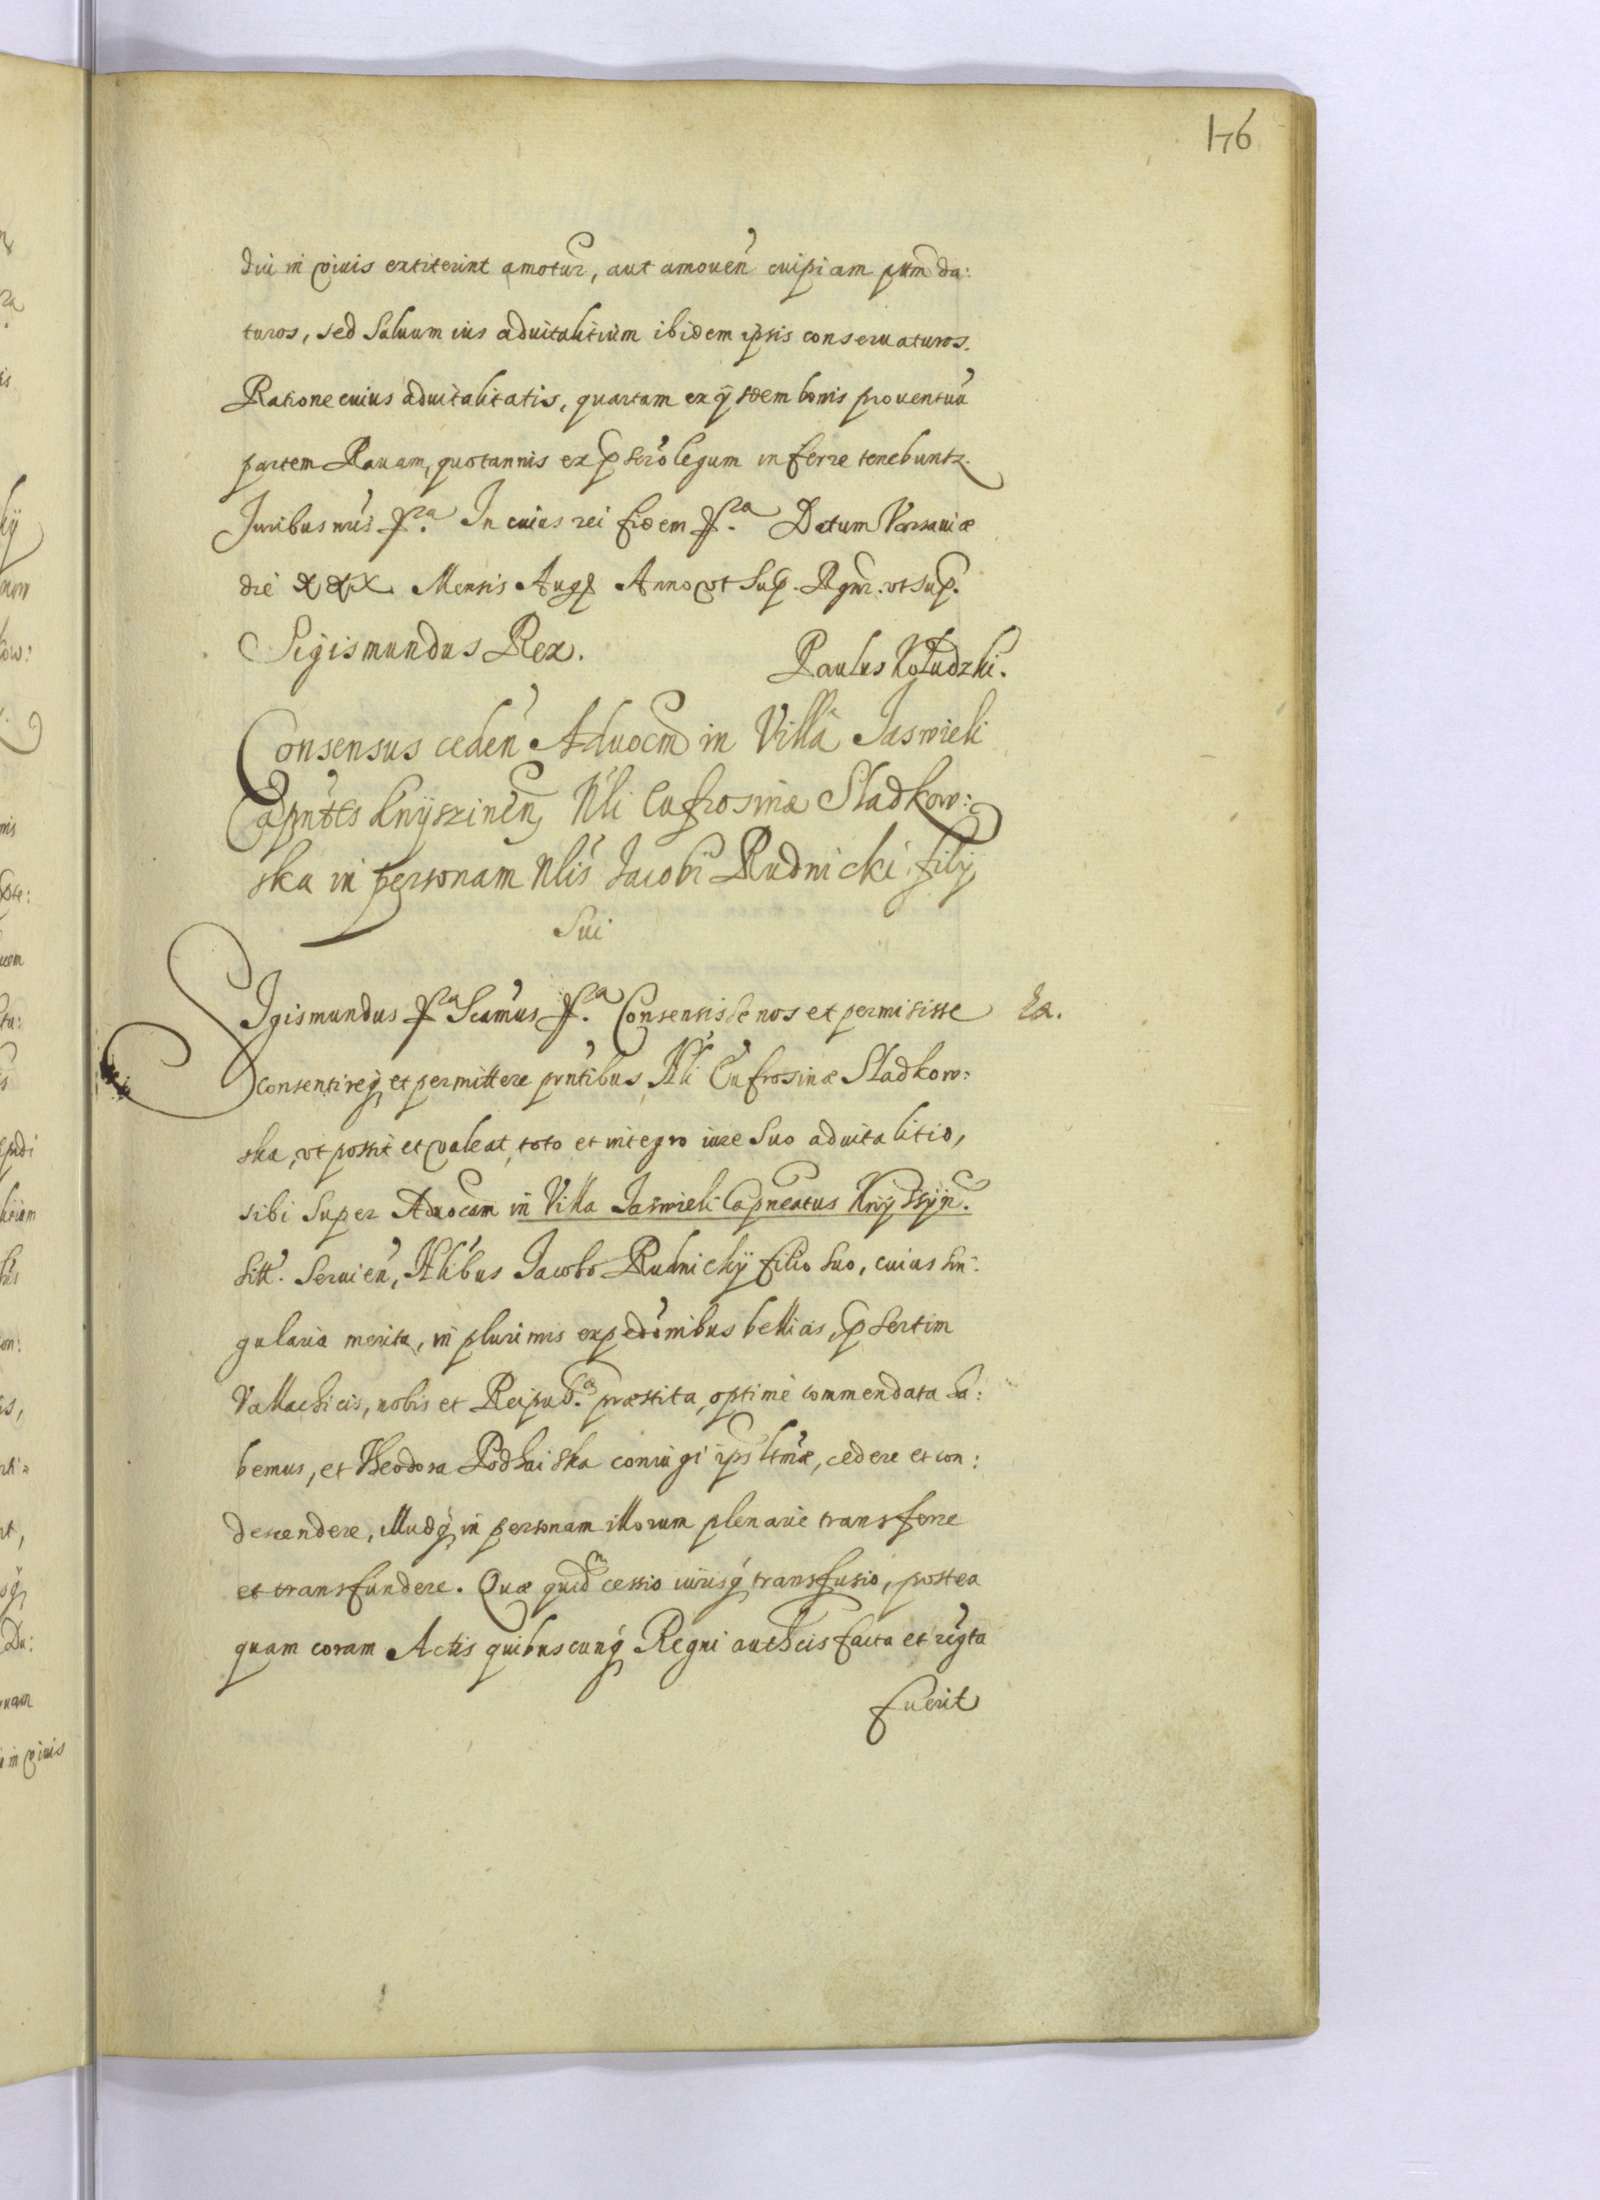 176
diu in vivis extiterint amotur, aut amouen̄ cuipiam ptm̄ da:
turos, sed saluum ius aduitalitium ibidem ipsis conseruaturos.
Ratione cuius aduitalitatis, quartam ex ijsdem bonis prouentuū
partem Rauam, quotannis ex pscr̄o legum inferre tenebuntr.
Juribus nr̄is In cuius rei fidem Datum Varsauiæ
die XXX Mensis Aug Anno vt sup. Rgnr. vt sup.
Sigismundus Rex. Paulus Wołudzki.
Consensus ceden̄ Aduocm̄ in Villa Jaswieli
Capn̄tts Knÿszinen̄ Nli Eufrosinæ Sladkow:
ska in personam Nlis Jacobi Rudnicki filÿ
Sui
Sigismundus Scam̄us Consensisse nos et permisisse Ra.
consentireq et permittere prn̄tibus, Nli Eufrosinæ Sladkow:
ska, vt possit et valeat, toto et integro iure suo aduitalitio,
sibi super Aduocam in Villa Jaswieli Capn̄eatus Knÿssÿn.
sitt. seruien̄, Nlibus Jacobo Rudnickÿ filio suo, cuius sin:
gularia merita, in plurimis expedōnibus bellicis, psertim
Vallachicis, nobis et Reipub. præstita, optimè commendata ha:
bemus, et Theodora Podhaiska coniugi ips ltmæ, cedere et con:
descendere, illudq in personam illorum plenarie transferre
et transfundere. Quæ quidm cessio iurisq transfusio, postea
quam coram Actis quibuscunq Regni authcis facta et reḡta
fuerit